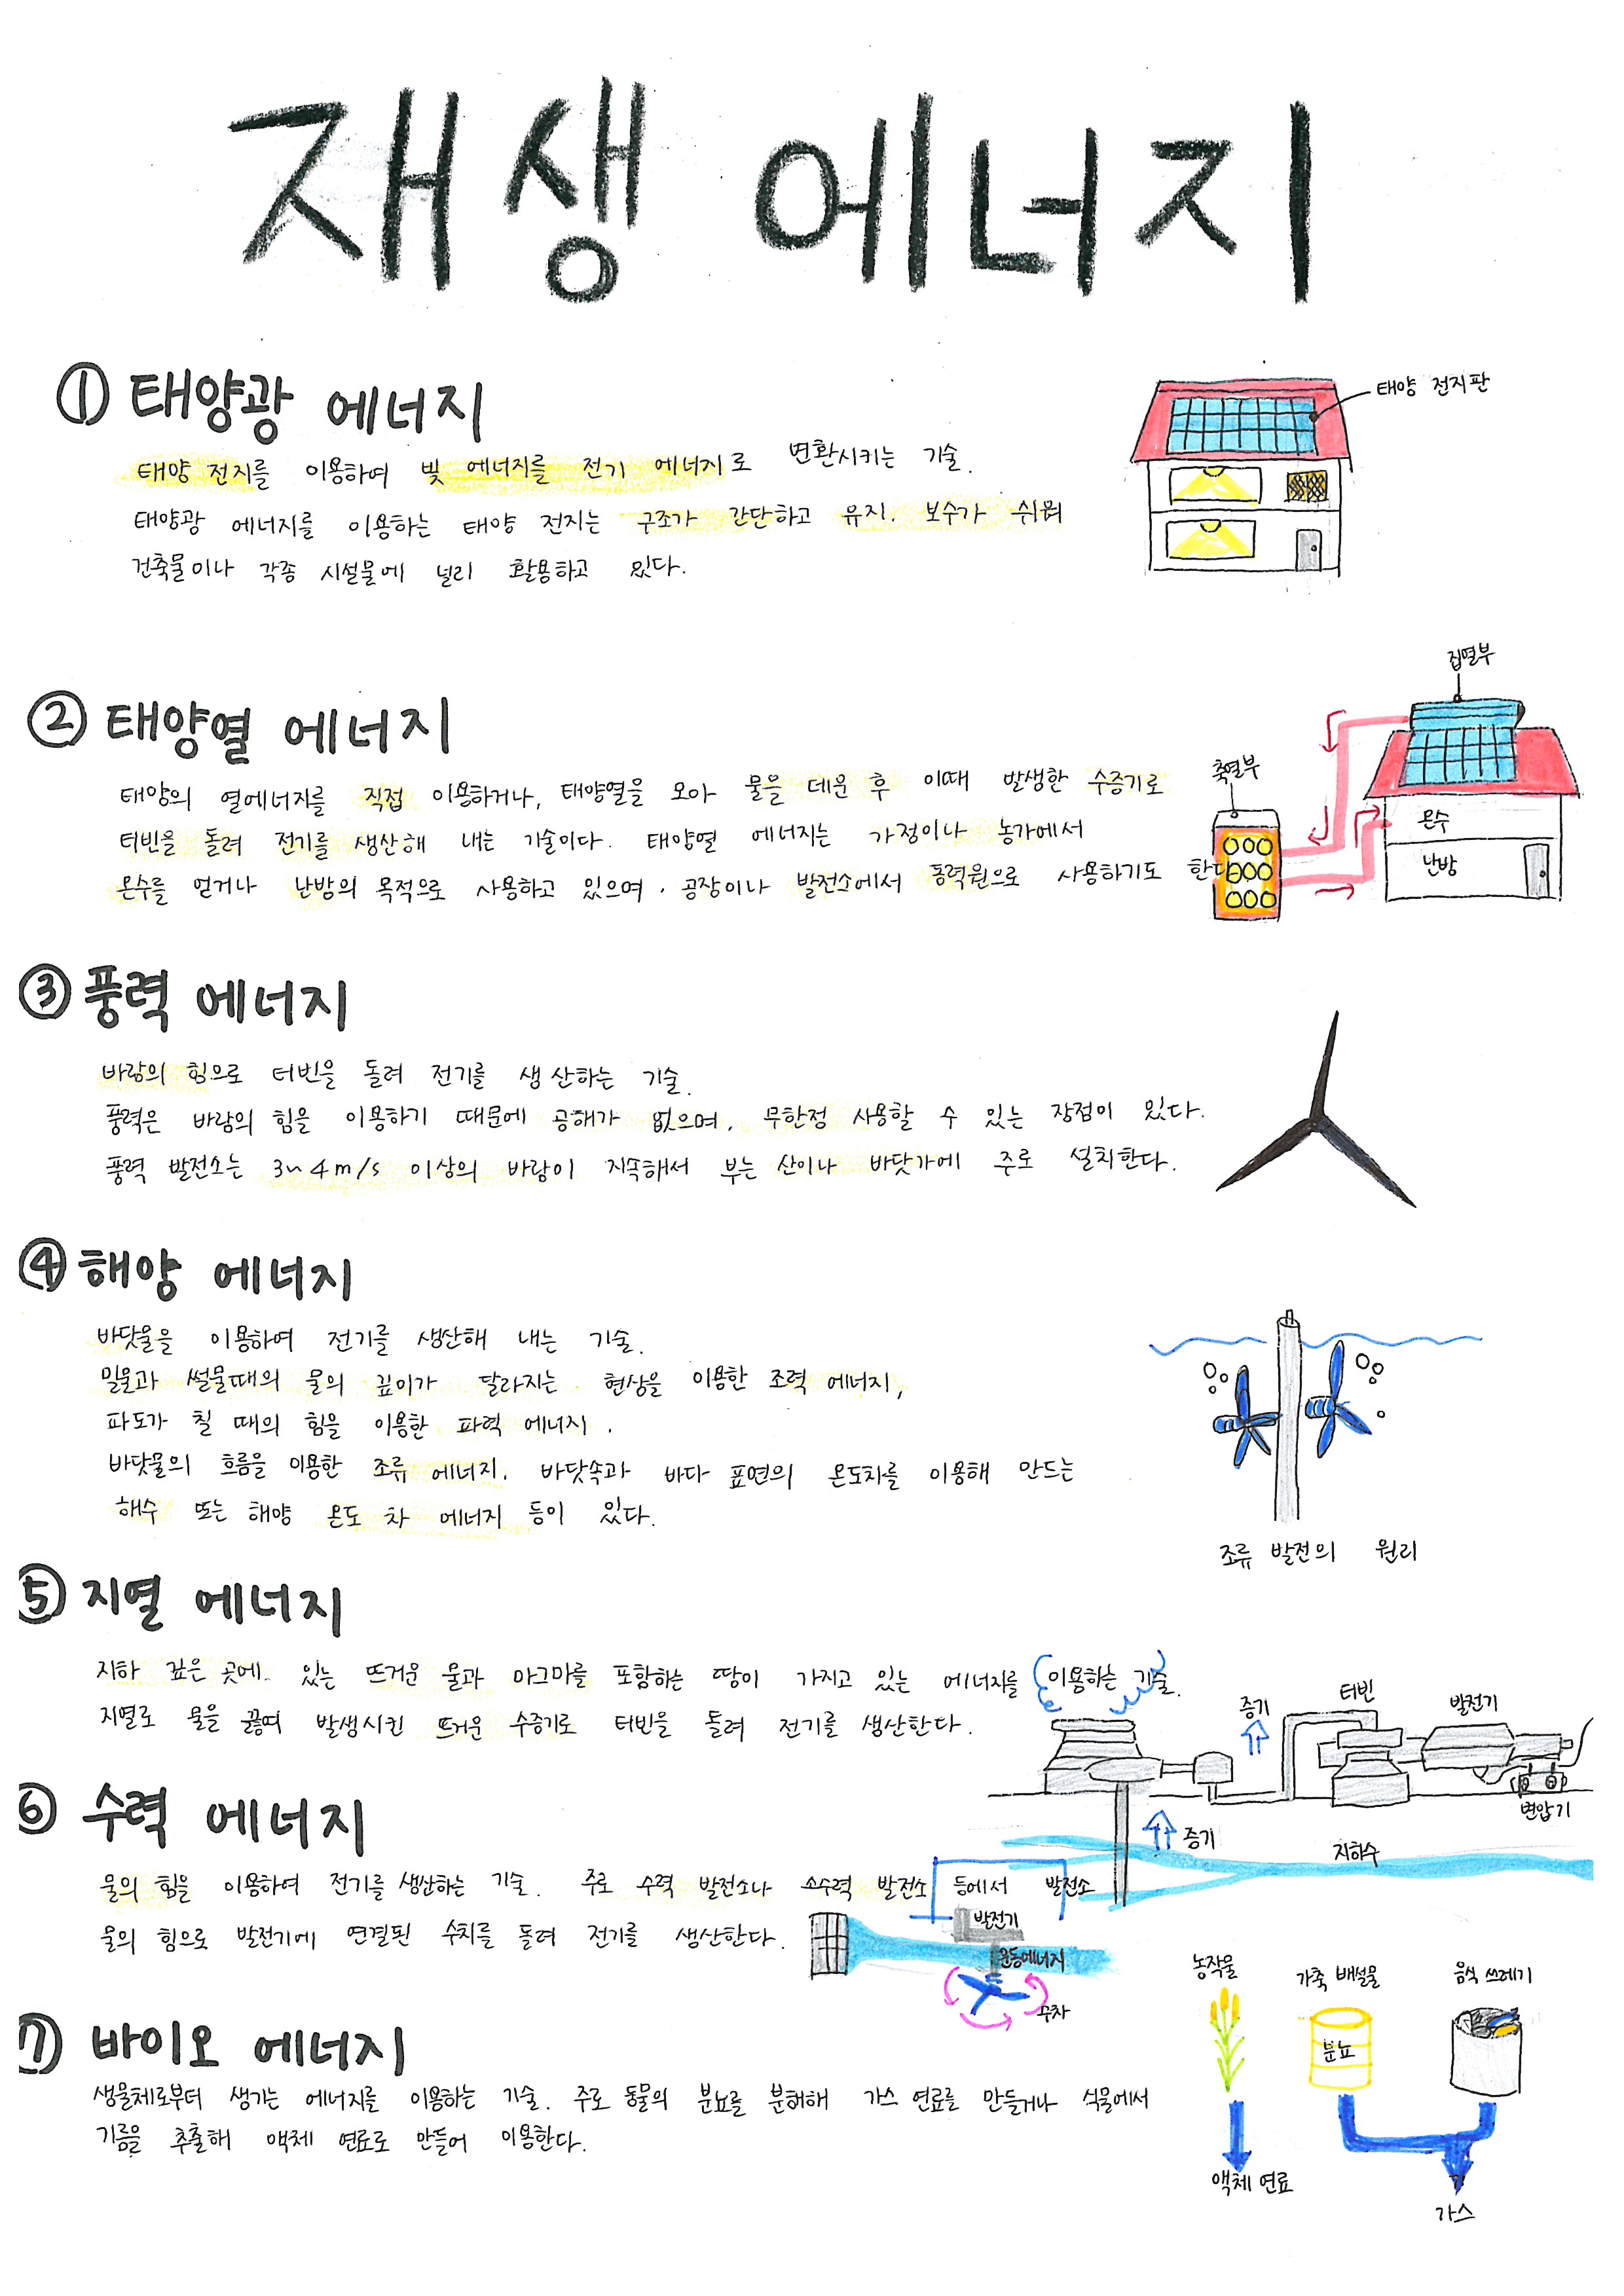 재생 에너지
① 태양광 에너지
태양 전지를 이용하여 빛 에너지를 전기 에너지로 변환시키는 기술.
태양광 에너지를 이용하는 태양 전지는 구조가 간단하고 유지. 보수가 쉬워
건축물이나 각종 시설물에 널리 활용하고 있다.
태양 전지판
② 태양열 에너지
태양의 열에너지를 직접 이용하거나, 태양열을 모아 물을 데운 후 이때 발생한 수증기로
터빈을 돌려 전기를 생산해 내는 기술이다. 태양열 에너지는 가정이나 농가에서
온수를 얻거나 난방의 목적으로 사용하고 있으며, 공장이나 발전소에서 동력원으로 사용하기도 한다.
집열부
축열부
온수
난방
③ 풍력 에너지
바람의 힘으로 터빈을 돌려 전기를 생산하는 기술.
풍력은 바람의 힘을 이용하기 때문에 공해가 없으며, 무한정 사용할 수 있는 장점이 있다.
풍력 발전소는 3~4m/s 이상의 바람이 지속해서 부는 산이나 바닷가에 주로 설치한다.
④ 해양 에너지
바닷물을 이용하여 전기를 생산해 내는 기술.
밀물과 썰물때의 물의 깊이가 달라지는 현상을 이용한 조력 에너지,
파도가 칠 때의 힘을 이용한 파력 에너지,
바닷물의 흐름을 이용한 조류 에너지, 바닷속과 바다 표면의 온도차를 이용해 만드는
해수 또는 해양 온도 차 에너지 등이 있다.
조류 발전의 원리
⑤ 지열 에너지
지하 깊은 곳에 있는 뜨거운 물과 마그마를 포함하는 땅이 가지고 있는 에너지를 이용하는 기술.
지열로 물을 끓여 발생시킨 뜨거운 수증기로 터빈을 돌려 전기를 생산한다.
증기
터빈
발전기
변압기
증기
지하수
⑥ 수력 에너지
물의 힘을 이용하여 전기를 생산하는 기술. 주로 수력 발전소나 소수력 발전소 등에서
물의 힘으로 발전기에 연결된 수차를 돌려 전기를 생산한다.
발전소
발전기
운동에너지
수차
⑦ 바이오 에너지
생물체로부터 생기는 에너지를 이용하는 기술. 주로 동물의 분뇨를 분해해 가스 연료를 만들거나 식물에서
기름을 추출해 액체 연료로 만들어 이용한다.
농작물
가축 배설물
음식 쓰레기
분뇨
액체 연료
가스